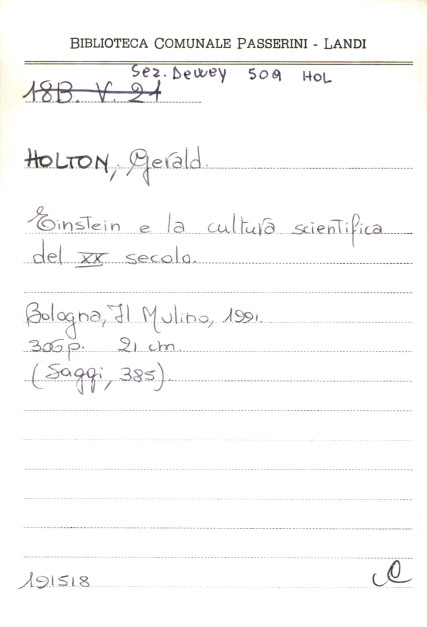 BIBLIOTECA COMUNALE PASSERINI - LANDI
Sez. Dewey 509 HOL
18B. V. 21
HOLTON, Gerald.
Einstein e la cultura scientifica
del XX secolo.
Bologna, Il Mulino, 1991.
306 p. 21 cm.
(Saggi, 385).
191518